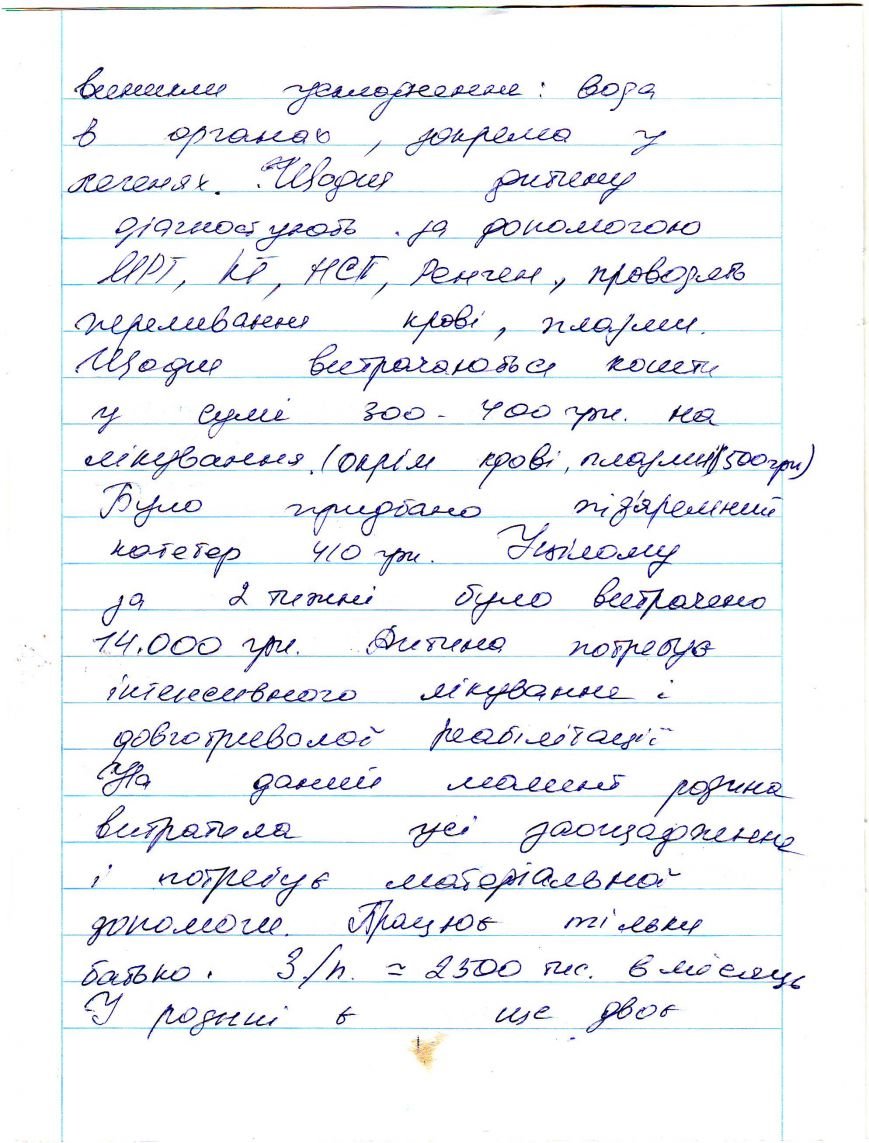 виникли ускладнення: вода
в органах, зокрема у
легенях. Щодня дитину
діагностують за допомогою
МРТ, КТ, НСГ, Ренген, проводять
переливання крові, плазми.
Щодня витрачаються кошти
у сумі 300-400 грн. на
лікування. (окрім крові, плазми)(500грн)
Було придбано під'яремний
катетер 410 грн. Уцілому
за 2 тижні було витрачено
14.000 грн. Дитина потребує
інтенсивного лікування і
довготривалої реабілітації
На даний момент родина
витратила усі заощадження
і потребує матеріальної
допомоги. Працює тільки
батько. З/п. ≈ 2300 тис. в місяць
У родині є ще двоє